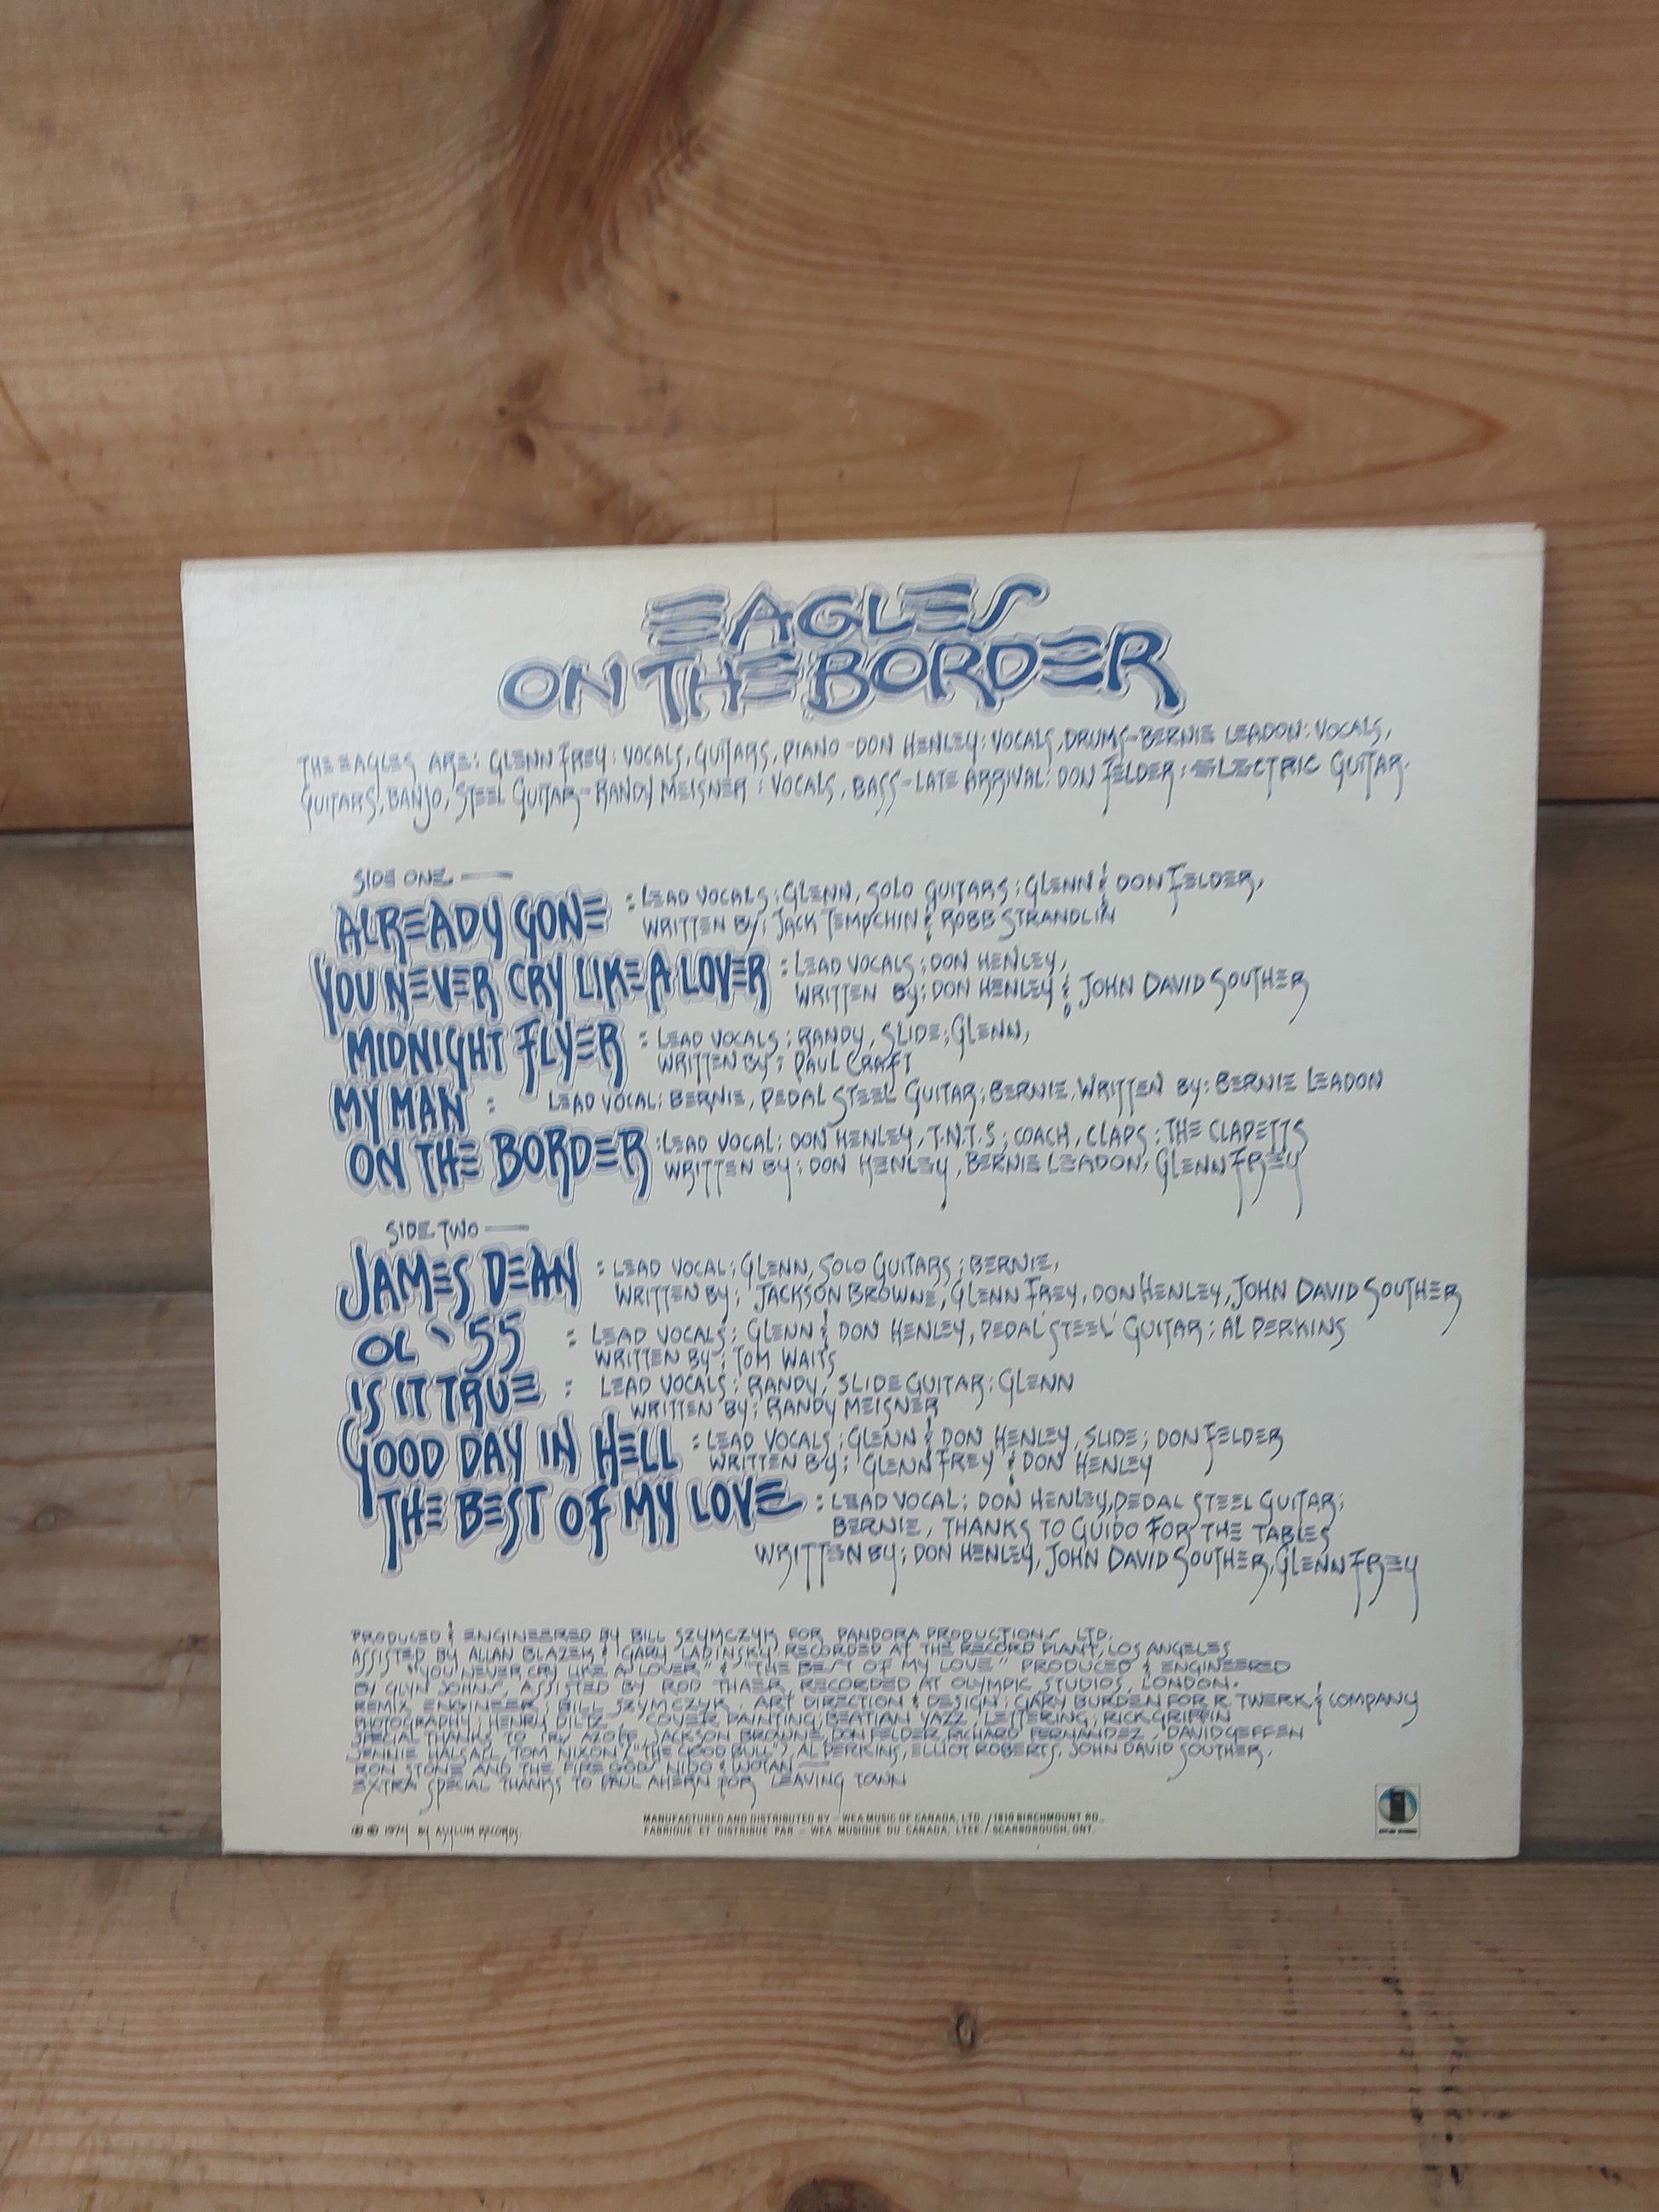 EAGLES
ON THE BORDER
THE EAGLES ARE: GLENN FREY: VOCALS, GUITARS, PIANO-DON HENLEY: VOCALS, DRUMS-BERNIE LEADON: VOCALS,
GUITARS, BANJO, STEEL GUITAR-RANDY MEISNER: VOCALS, BASS-LATE ARRIVAL: DON FELDER: ELECTRIC GUITAR.
SIDE ONE —
ALREADY GONE : LEAD VOCALS; GLENN, SOLO GUITARS; GLENN & DON FELDER,
WRITTEN BY; JACK TEMPCHIN & ROBB STRANDLIN
YOU NEVER CRY LIKE A LOVER : LEAD VOCALS; DON HENLEY,
WRITTEN BY; DON HENLEY & JOHN DAVID SOUTHER
MIDNIGHT FLYER : LEAD VOCALS; RANDY, SLIDE; GLENN,
WRITTEN BY: PAUL CRAFT
MY MAN : LEAD VOCAL; BERNIE, PEDAL STEEL GUITAR; BERNIE, WRITTEN BY: BERNIE LEADON
ON THE BORDER : LEAD VOCAL; DON HENLEY, T.N.T.S; COACH, CLAPS; THE CLAPETTS
WRITTEN BY; DON HENLEY, BERNIE LEADON, GLENN FREY
SIDE TWO —
JAMES DEAN : LEAD VOCAL; GLENN, SOLO GUITARS; BERNIE,
WRITTEN BY; JACKSON BROWNE, GLENN FREY, DON HENLEY, JOHN DAVID SOUTHER
OL '55 : LEAD VOCALS; GLENN & DON HENLEY, PEDAL STEEL GUITAR; AL PERKINS
WRITTEN BY; TOM WAITS
IS IT TRUE : LEAD VOCALS; RANDY, SLIDE GUITAR; GLENN
WRITTEN BY; RANDY MEISNER
GOOD DAY IN HELL : LEAD VOCALS; GLENN & DON HENLEY, SLIDE; DON FELDER
WRITTEN BY; GLENN FREY & DON HENLEY
THE BEST OF MY LOVE : LEAD VOCAL; DON HENLEY, PEDAL STEEL GUITAR;
BERNIE, THANKS TO GUIDO FOR THE TABLES
WRITTEN BY; DON HENLEY, JOHN DAVID SOUTHER, GLENN FREY
PRODUCED & ENGINEERED BY BILL SZYMCZYK FOR PANDORA PRODUCTIONS LTD.
ASSISTED BY ALLAN BLAZEK & GARY LADINSKY. RECORDED AT THE RECORD PLANT, LOS ANGELES
"YOU NEVER CRY LIKE A LOVER" & "THE BEST OF MY LOVE" PRODUCED & ENGINEERED
BY GLYN JOHNS, ASSISTED BY ROD THAER, RECORDED AT OLYMPIC STUDIOS, LONDON.
REMIX ENGINEER; BILL SZYMCZYK, ART DIRECTION & DESIGN; GARY BURDEN FOR R. TWERK & COMPANY
PHOTOGRAPHY; HENRY DILTZ, COVER PAINTING; BEATIAN YAZZ, LETTERING; RICK GRIFFIN
SPECIAL THANKS TO IRV AZOFF, JACKSON BROWNE, DON FELDER, RICHARD FERNANDEZ, DAVID GEFFEN
JENNIE HALSALL, TOM NIXON ("THE GOOD BULL"), AL PERKINS, ELLIOT ROBERTS, JOHN DAVID SOUTHER,
RON STONE AND THE FIRE GODS NIDO & WOTAN —
EXTRA SPECIAL THANKS TO PAUL AHERN FOR LEAVING TOWN
Ⓟ © 1974 BY ASYLUM RECORDS.
MANUFACTURED AND DISTRIBUTED BY – WEA MUSIC OF CANADA, LTD. / 1810 BIRCHMOUNT RD.,
FABRIQUE ET DISTRIBUE PAR – WEA MUSIQUE DU CANADA, LTEE. / SCARBOROUGH, ONT.